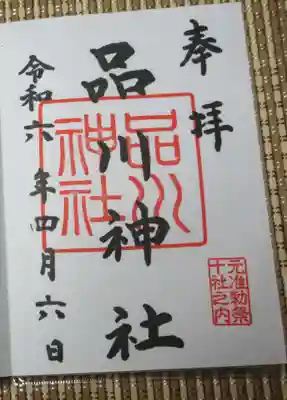 奉拝
品川神社
品川
神社
令和六年四月六日
元准勅祭
十社之内